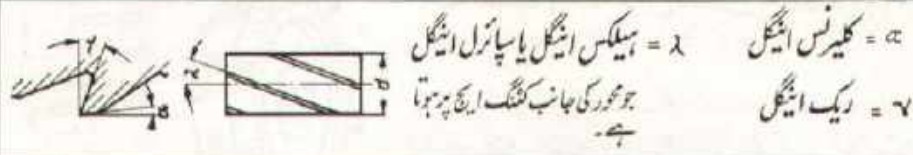 α = کلیرنس اینگل
γ = ریک اینگل
λ = ہیلکس اینگل یا سپائرل اینگل
جو محور کی جانب کٹنگ ایج پر ہوتا
ہے۔
γ
α
λ
d